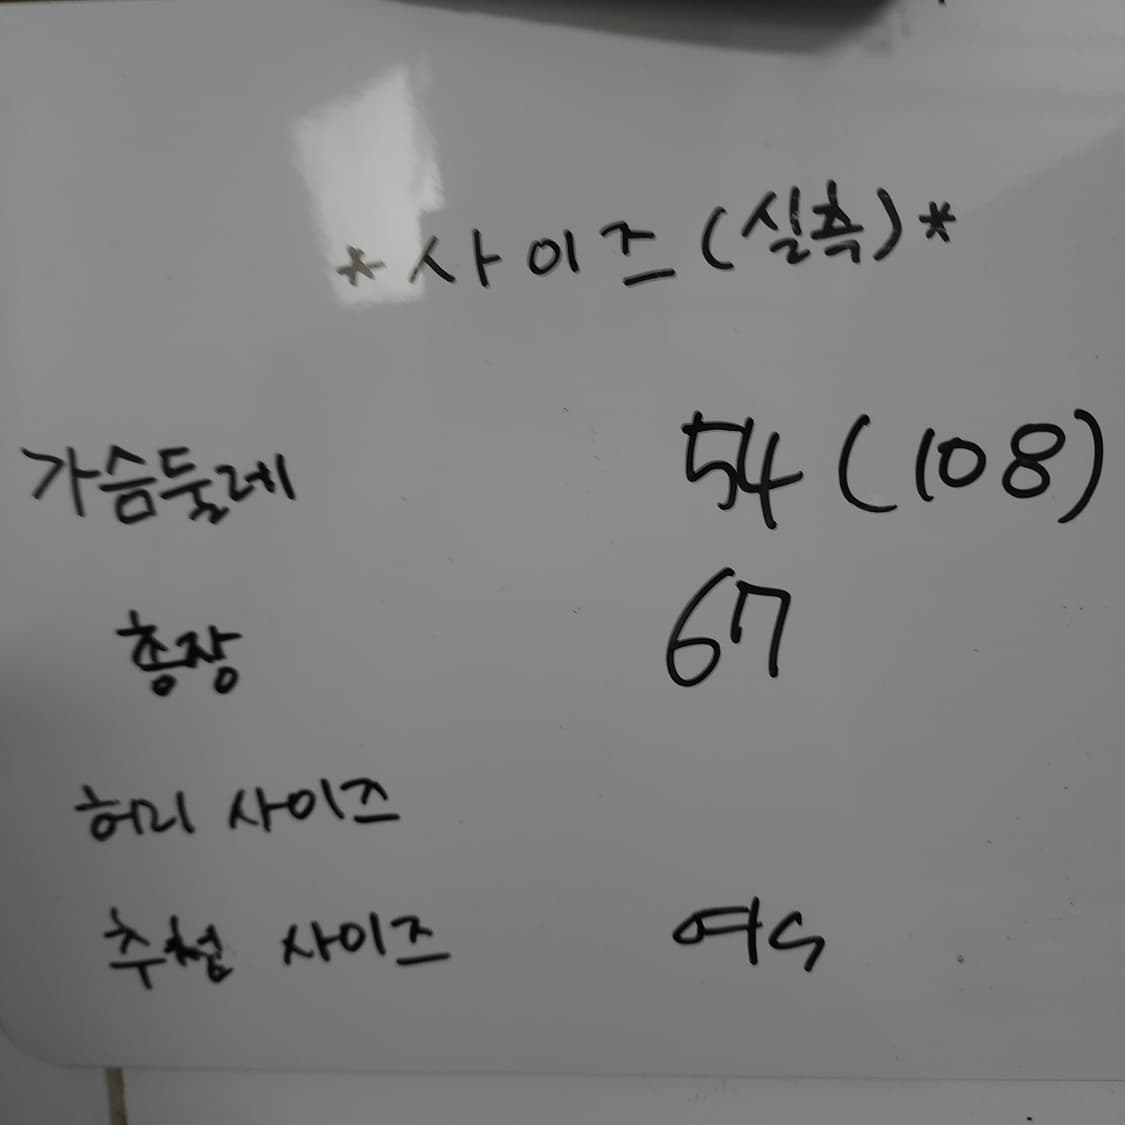 *사이즈(실측)*
가슴둘레 54(108)
총장 67
허리 사이즈
추천 사이즈 여S